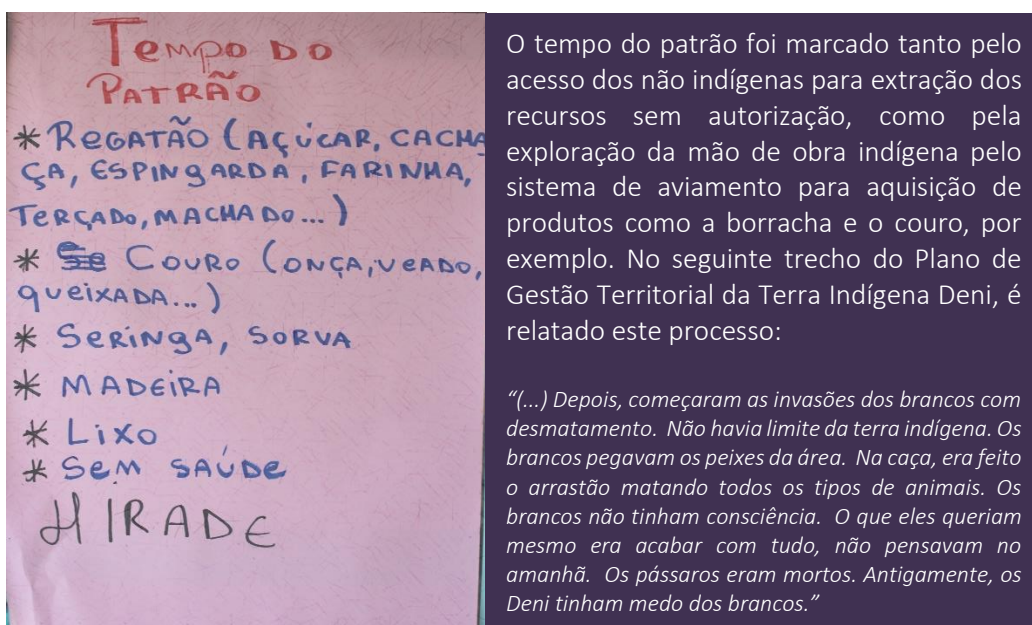 TEMPO DO
PATRÃO
* REGATÃO (AÇÚCAR, CACHA
ÇA, ESPINGARDA, FARINHA,
TERÇADO, MACHADO...)
* COURO (ONÇA, VEADO,
QUEIXADA...)
* SERINGA, SORVA
* MADEIRA
* LIXO
* SEM SAÚDE
HIRADE
O tempo do patrão foi marcado tanto pelo
acesso dos não indígenas para extração dos
recursos sem autorização, como pela
exploração da mão de obra indígena pelo
sistema de aviamento para aquisição de
produtos como a borracha e o couro, por
exemplo. No seguinte trecho do Plano de
Gestão Territorial da Terra Indígena Deni, é
relatado este processo:
“(...) Depois, começaram as invasões dos brancos com
desmatamento. Não havia limite da terra indígena. Os
brancos pegavam os peixes da área. Na caça, era feito
o arrastão matando todos os tipos de animais. Os
brancos não tinham consciência. O que eles queriam
mesmo era acabar com tudo, não pensavam no
amanhã. Os pássaros eram mortos. Antigamente, os
Deni tinham medo dos brancos.”